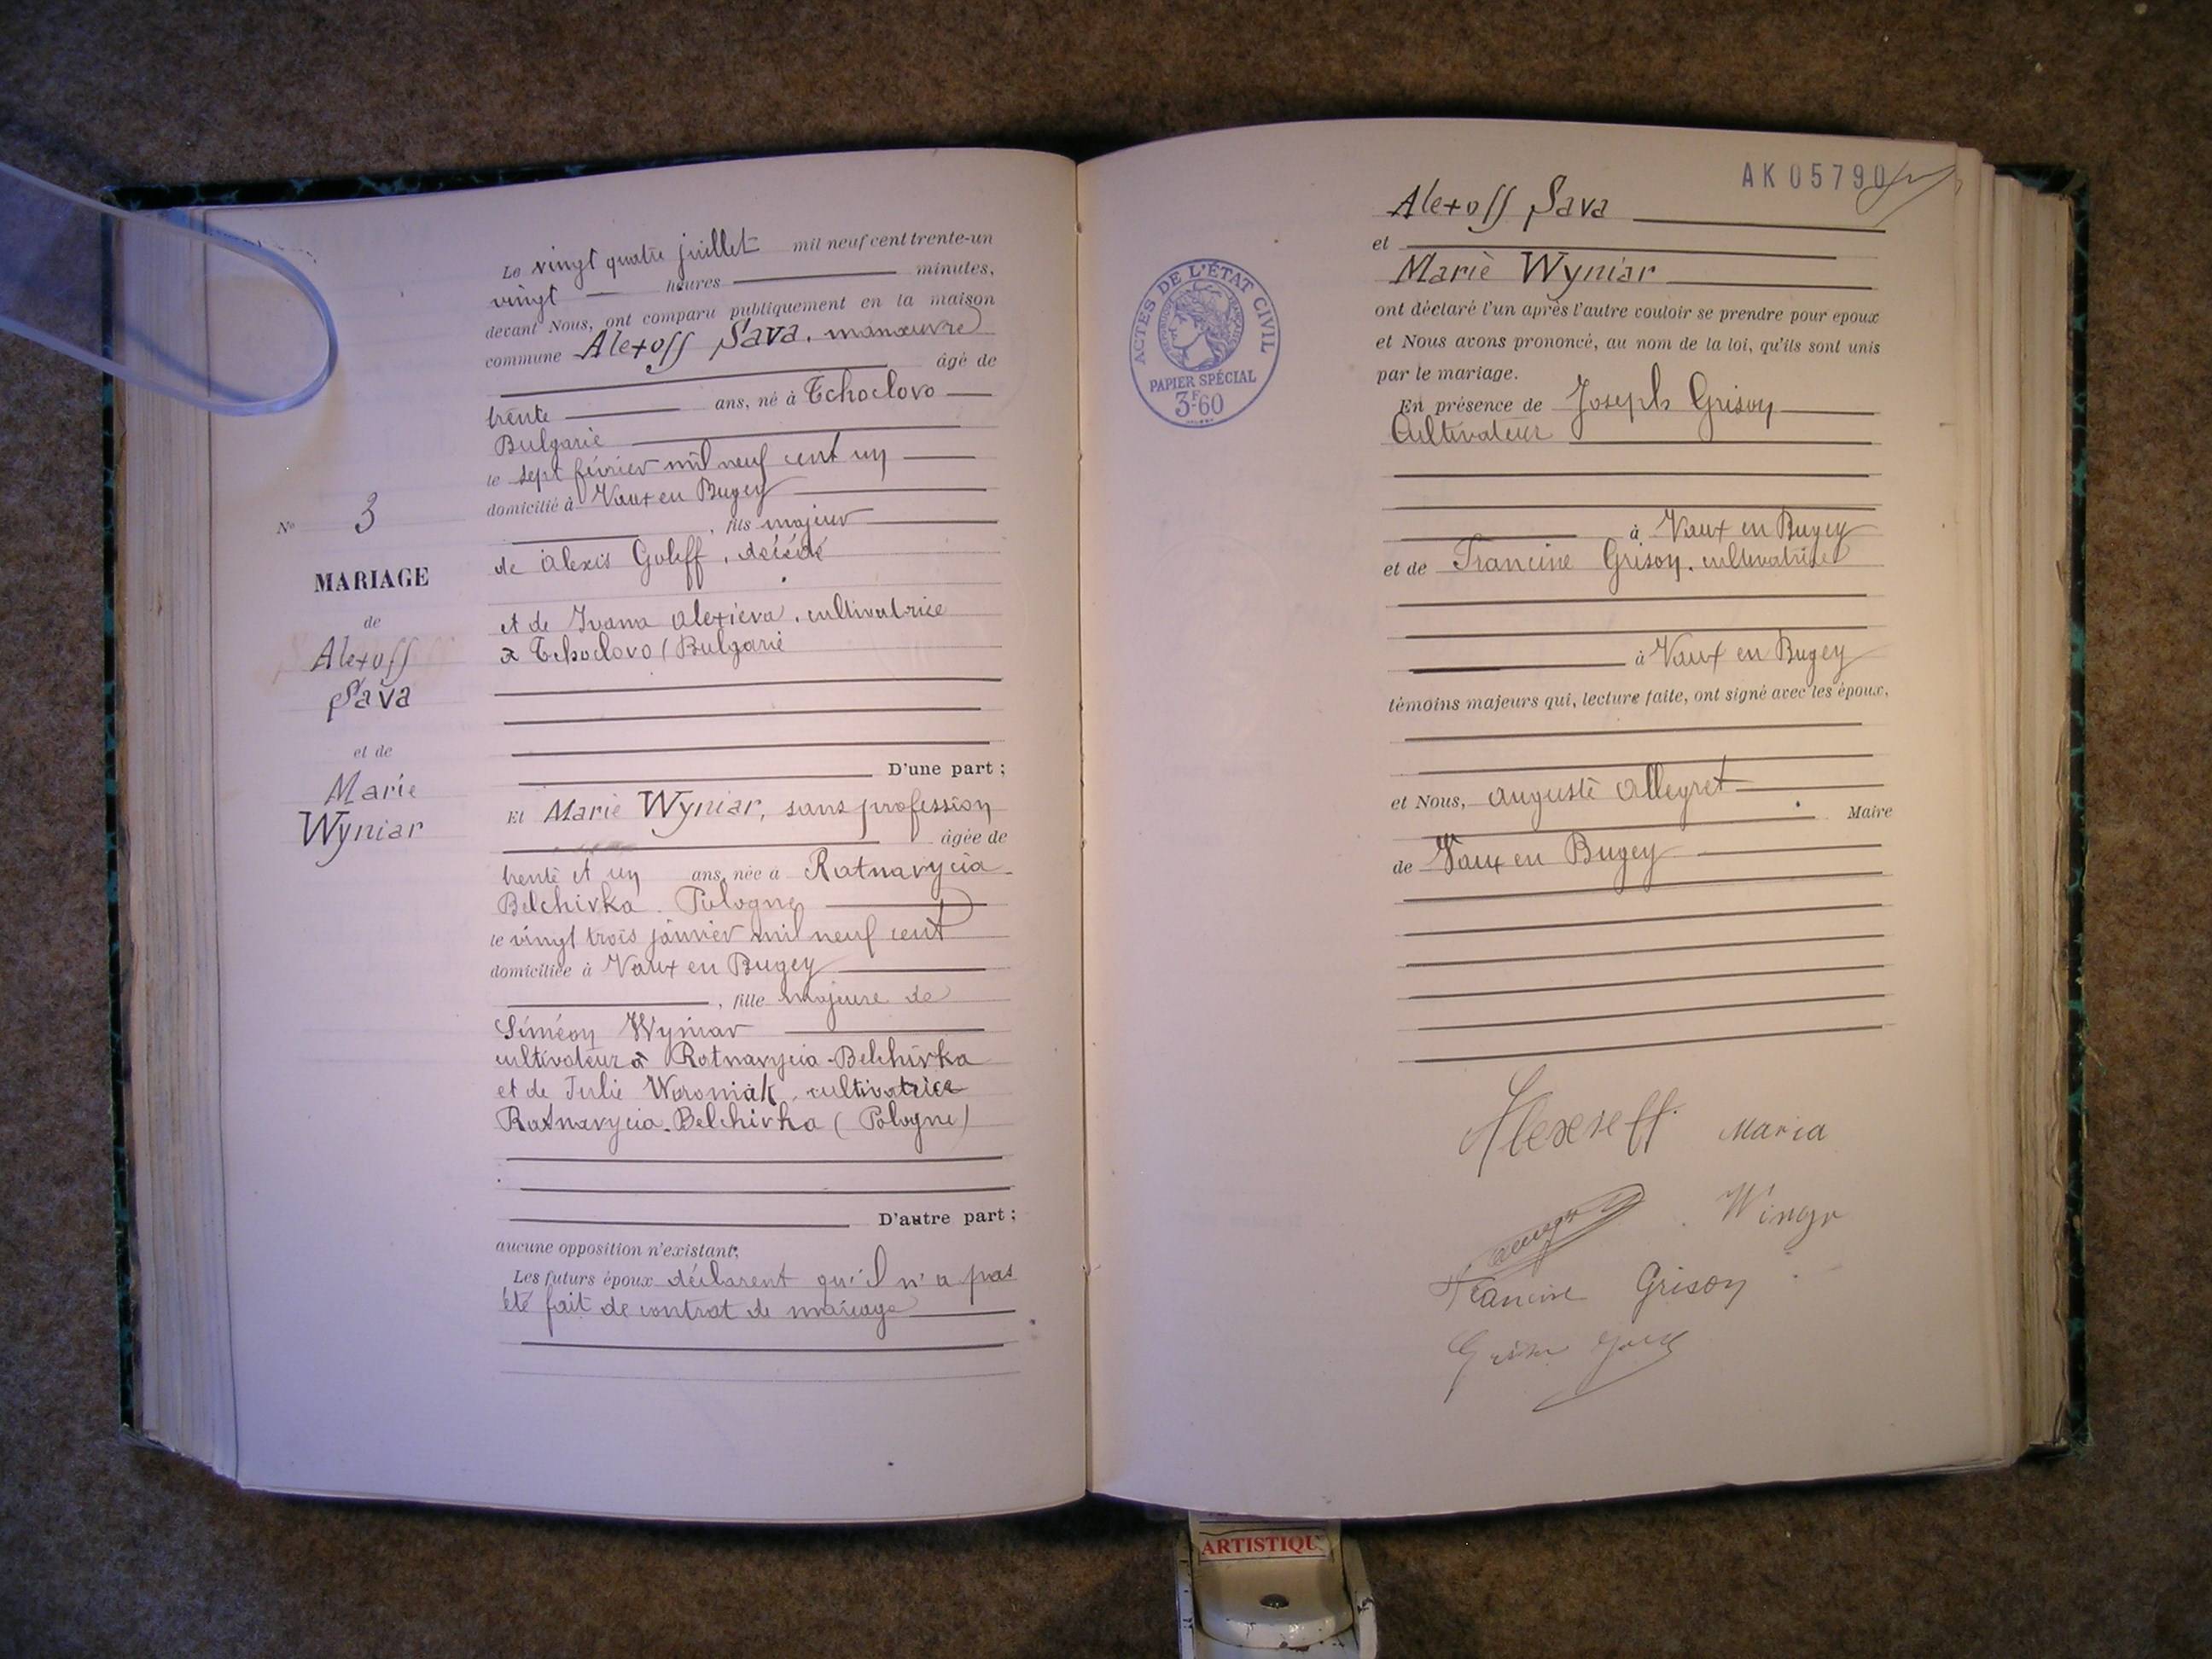 Le vingt quatre juillet mil neuf cent trente-un
vingt heures minutes,
devant Nous, ont comparu publiquement en la maison
commune Alexoff Sava, manœuvre
âgé de
trente ans, né à Tchoclovo
Bulgarie
le sept février mil neuf cent un
domicilié à Vaux en Bugey
, fils majeur
de Alexis Goleff, décédé
et de Ivana Alexieva, cultivatrice
à Tchoclovo (Bulgarie
D'une part ;
Et Marie Wyniar, sans profession
âgée de
trente et un ans, née à Ratnavycia
Belchivka. Pologne
le vingt trois janvier mil neuf cent
domiciliée à Vaux en Bugey
, fille majeure de
Siméon Wyniar
cultivateur à Ratnavycia-Belchivka
et de Julie Woroniak, cultivatrice
Ratnavycia-Belchivka (Pologne)
D'autre part ;
aucune opposition n'existant,
Les futurs époux déclarent qu'il n'a pas
été fait de contrat de mariage
N° 3
MARIAGE
de
Alexoff
Sava
et de
Marie
Wyniar
AK 05790
Alexoff Sava
et
Marie Wyniar
ont déclaré l'un après l'autre vouloir se prendre pour époux
et Nous avons prononcé, au nom de la loi, qu'ils sont unis
par le mariage.
En présence de Joseph Grison
Cultivateur
à Vaux en Bugey
et de Francine Grison, cultivatrice
à Vaux en Bugey
témoins majeurs qui, lecture faite, ont signé avec les époux,
et Nous, Auguste Alleyret
Maire
de Vaux en Bugey
Alexieff Maria
Winyr
Francine Grison
Grison
ACTES DE L'ÉTAT CIVIL
RÉPUBLIQUE FRANÇAISE
PAPIER SPÉCIAL
3F60
ARTISTIQU